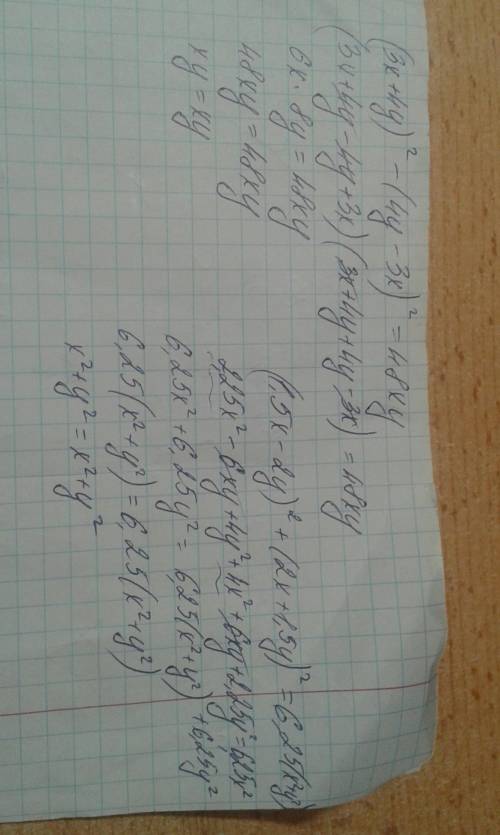 (3x+4y)² - (4y-3x)² = 48xy
(3x+4y-4y+3x)(3x+4y+4y-3x) = 48xy
6x · 8y = 48xy
48xy = 48xy
xy = xy
(1,5x-2y)² + (2x+1,5y)² = 6,25(x²+y²)
2,25x² - 6xy + 4y² + 4x² + 6xy + 2,25y² = 6,25x² + 6,25y²
6,25x² + 6,25y² = 6,25(x²+y²)
6,25(x²+y²) = 6,25(x²+y²)
x²+y² = x²+y²